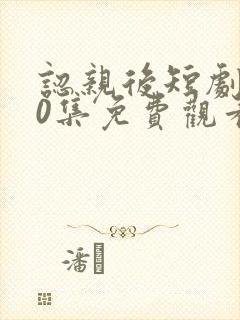 認親後短劇
0集免費觀看
潘